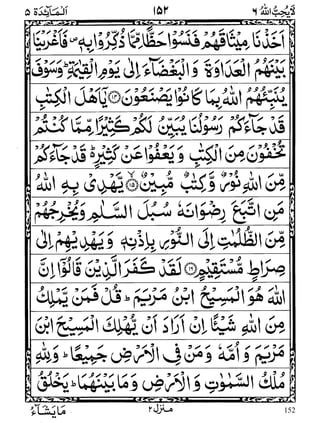 لَايُحِبُّ اللّٰهُ ٦ ١٥٢ اَلْمَآئِدَة ٥
اَخَذْنَا مِيْثَاقَهُمْ فَنَسُوْا حَظًّا مِّمَّا ذُكِّرُوْا بِهٖ ۪ فَاَغْرَيْنَا
بَيْنَهُمُ الْعَدَاوَةَ وَ الْبَغْضَآءَ اِلٰى يَوْمِ الْقِيٰمَةِ ؕ وَسَوْفَ
يُنَبِّئُهُمُ اللّٰهُ بِمَا كَانُوْا يَصْنَعُوْنَ ﴿۱۴﴾ يٰۤاَهْلَ الْكِتٰبِ
قَدْ جَآءَكُمْ رَسُوْلُنَا يُبَيِّنُ لَكُمْ كَثِيْرًا مِّمَّا كُنْتُمْ
تُخْفُوْنَ مِنَ الْكِتٰبِ وَ يَعْفُوْا عَنْ كَثِيْرٍ ؕ قَدْ جَآءَكُمْ
مِّنَ اللّٰهِ نُوْرٌ وَّ كِتٰبٌ مُّبِيْنٌ ﴿۱۵﴾ يَّهْدِيْ بِهِ اللّٰهُ
مَنِ اتَّبَعَ رِضْوَانَهٗ سُبُلَ السَّلٰمِ وَيُخْرِجُهُمْ
مِّنَ الظُّلُمٰتِ اِلَى النُّوْرِ بِاِذْنِهٖ وَ يَهْدِيْهِمْ اِلٰى
صِرَاطٍ مُّسْتَقِيْمٍ ﴿۱۶﴾ لَقَدْ كَفَرَ الَّذِيْنَ قَالُوْۤا اِنَّ
اللّٰهَ هُوَ الْمَسِيْحُ ابْنُ مَرْيَمَ ؕ قُلْ فَمَنْ يَّمْلِكُ
مِنَ اللّٰهِ شَيْئًا اِنْ اَرَادَ اَنْ يُّهْلِكَ الْمَسِيْحَ ابْنَ
مَرْيَمَ وَ اُمَّهٗ وَ مَنْ فِي الْاَرْضِ جَمِيْعًا ؕ وَلِلّٰهِ
مُلْكُ السَّمٰوٰتِ وَ الْاَرْضِ وَ مَا بَيْنَهُمَا ؕ يَخْلُقُ
مَا يَشَآءُ منزل ٢ 152